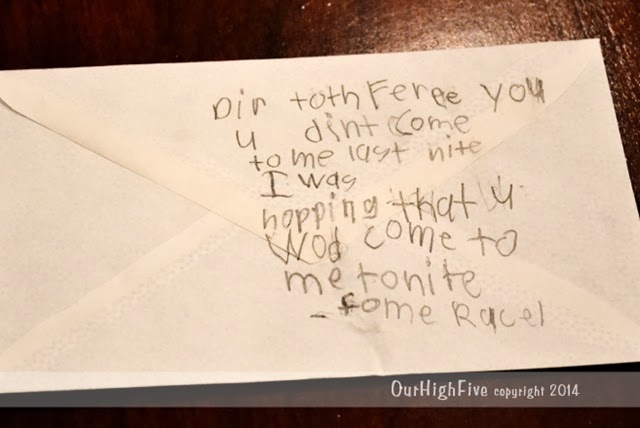 Dir toth Feree you
u dint come
to me last nite
I was
hopping that u
Wod come to
me tonite
- fome Racel
OurHighFive copyright 2014